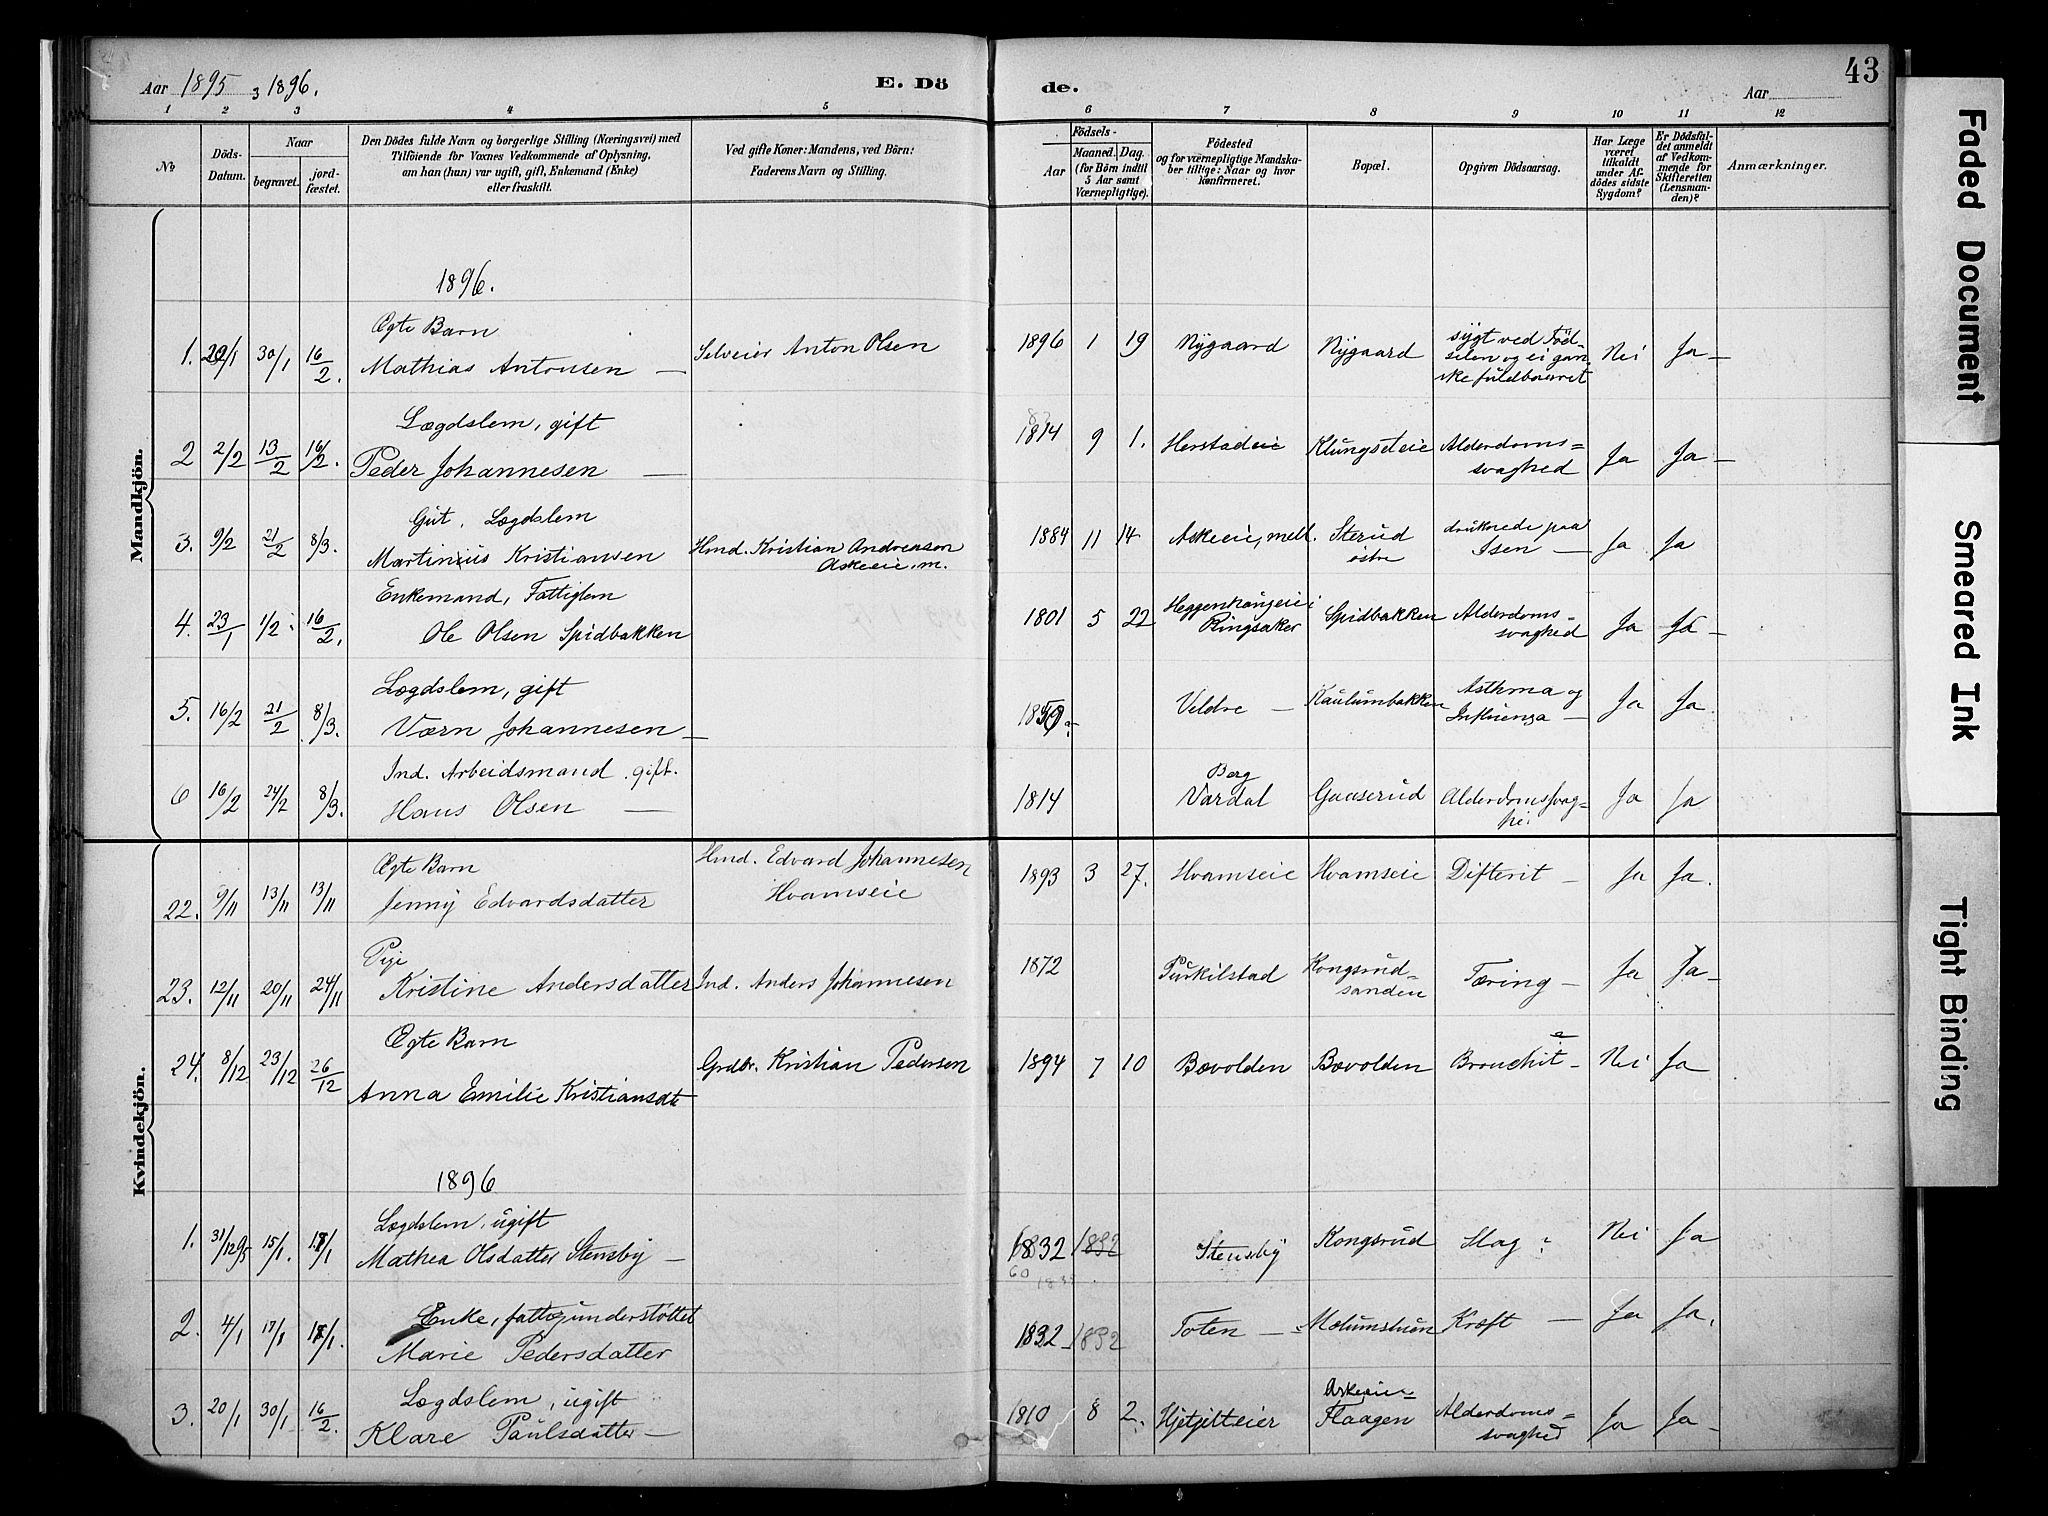 Aar 1895 3 1896.
E. Dö
de.
Aar
43
1 2 3 4 5 6 7 8 9 10 11 12
No
Döds-Datum.
Naar
begravet.
jord-fæstet.
Den Dödes fulde Navn og borgerlige Stilling (Næringsvei) med
Tilföiende for Voxnes Vedkommende af Oplysning,
om han (hun) var ugift, gift, Enkemand (Enke)
eller fraskilt.
Ved gifte Koner: Mandens, ved Börn:
Faderens Navn og Stilling.
Födsels-
Aar
Maaned. Dag.
(for Börn indtil
5 Aar samt
Værnepligtige).
Födested
og for værnepligtige Mandska-
ber tillige: Naar og hvor
konfirmeret.
Bopæl.
Opgiven Dödsaarsag.
Har Læge
været
tilkaldt
under Af-
dödes sidste
Sygdom?
Er Dödsfal-
det anmeldt
af Vedkom-
mende for
Skifteretten
(Lensman-
den)?
Anmærkninger.
Mandkjön.
1896.
Ægte Barn
1. 30/1 16/2. Mathias Antonsen — Selveier Anton Olsen 1896 1 19 Nygaard Nygaard sygt ved Föd-
selen og ei gan-
ske fuldbaaret Nei Ja —
Lægdslem, gift
2 2/2 13/2 16/2. Peder Johannesen — 1814 9 1. Herstadeie Klungsteie Alderdoms=
svaghed Ja Ja —
Gut, Lægdslem
3. 9/2 21/2 8/3. Martinius Kristiansen Hmd. Kristian Andreasen
Askeeie, m. 1884 11 14 Askeeie, mell. Sterud
östre druknede paa
Isen — Ja Ja
Enkemand, Fattiglem
4. 23/1 1/2. 16/2. Ole Olsen Spidbakken 1801 5 22 Ringsaker Spidbakken Alderdoms=
svaghed Ja Ja —
Lægdslem, gift
5. 16/2 21/2 8/3.Værn Johannesen — Veldre — Kaulumbakken Asthma og
Influenza — Ja Ja.
Ind. Arbeidsmand. gift.
6 16/2 24/2 8/3. Hans Olsen — 1814 Berg
Vardal Gaaserud Ja Ja
Kvindekjön.
Ægte Barn
22. 9/11 13/11 13/11 Jenny Edvardsdatter Hmd. Edvard Johannesen
Hvamseie 1893 3 27. Hvamseie Hvamseie Difterit — Ja Ja.
Pige
23. 12/11 20/11 24/11 Kristine Andersdatter Ind. Anders Johannesen 1872 Purkilstad Kongsrud=
sanden Tæring — Ja Ja —
Ægte Barn
24. 8/12 23/12 26/12 Anna Emilie Kristiansdtr Grdbr. Kristian Pedersen 1894 7 10 Bævolden Bævolden Bronchit — Nei Ja
1896
Lægdslem, ugift
1. 31/12 95 15/1. 18/1 Mathea Olsdatter Stensby — 1832 1832 Stensby Kongsrud Slag? Nei Ja
Enke, fattigunderstöttet
2. 4/1 17/1 18/1. Marie Pedersdatter 1832 1832 Toten — Molumstuen Kræft — Ja Ja.
Lægdslem, ugift
3. 20/1 30/1 16/2. Klare Paulsdatter — 1810 8 2. Askeeie=
Flaagen Alderdoms=
svaghed Ja Ja —
Faded Document
Smeared Ink
Tight Binding